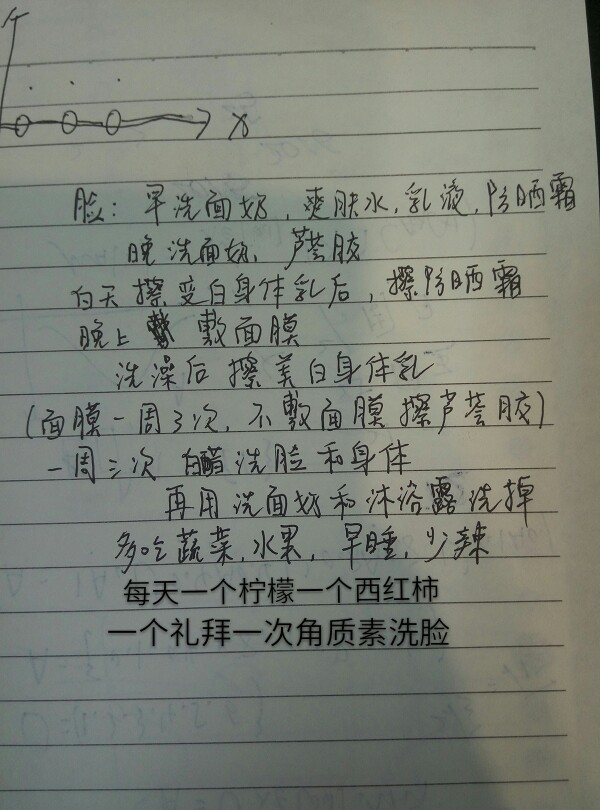 X
脸：早洗面奶，爽肤水，乳液，防晒霜
晚洗面奶、芦荟胶
白天擦变白身体乳后，擦防晒霜
晚上敷面膜
洗澡后擦美白身体乳
(面膜一周3次，不敷面膜擦芦荟胶)
一周三次白醋洗脸和身体
再用洗面奶和沐浴露洗掉
多吃蔬菜，水果，早睡，少辣
每天一个柠檬一个西红柿
一个礼拜一次角质素洗脸